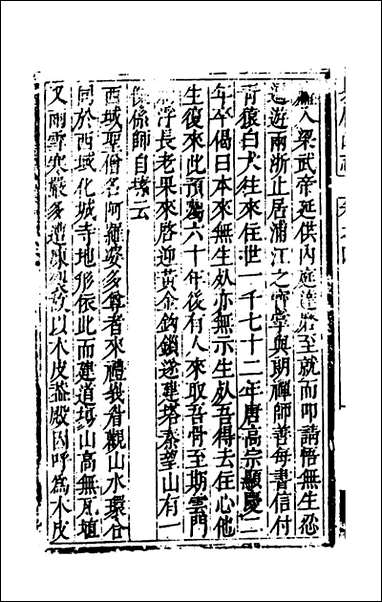 無入梁武帝延供內庭達磨至就而叩請悟無生忍
遊兩浙止居浦江之寶掌與朗禪師善每書信付
青猿白犬往來住世一千七十二年唐高宗顯慶二
年卒偈曰本來無生死亦無示生死吾得去住心他
生復來此預囑六十年後有人來取吾骨至斯雲門
浮長老果來啓迎黃金鉤鎖遂建塔秦望山有一
像係師自塑云
西域聖僧名阿羅婆多尊者來禮峩眉觀山水環合
同於西域化城寺地形依此而建道場山高無瓦埴
又雨雪寒嚴多遭凍裂以木皮蓋殿因呼為木皮